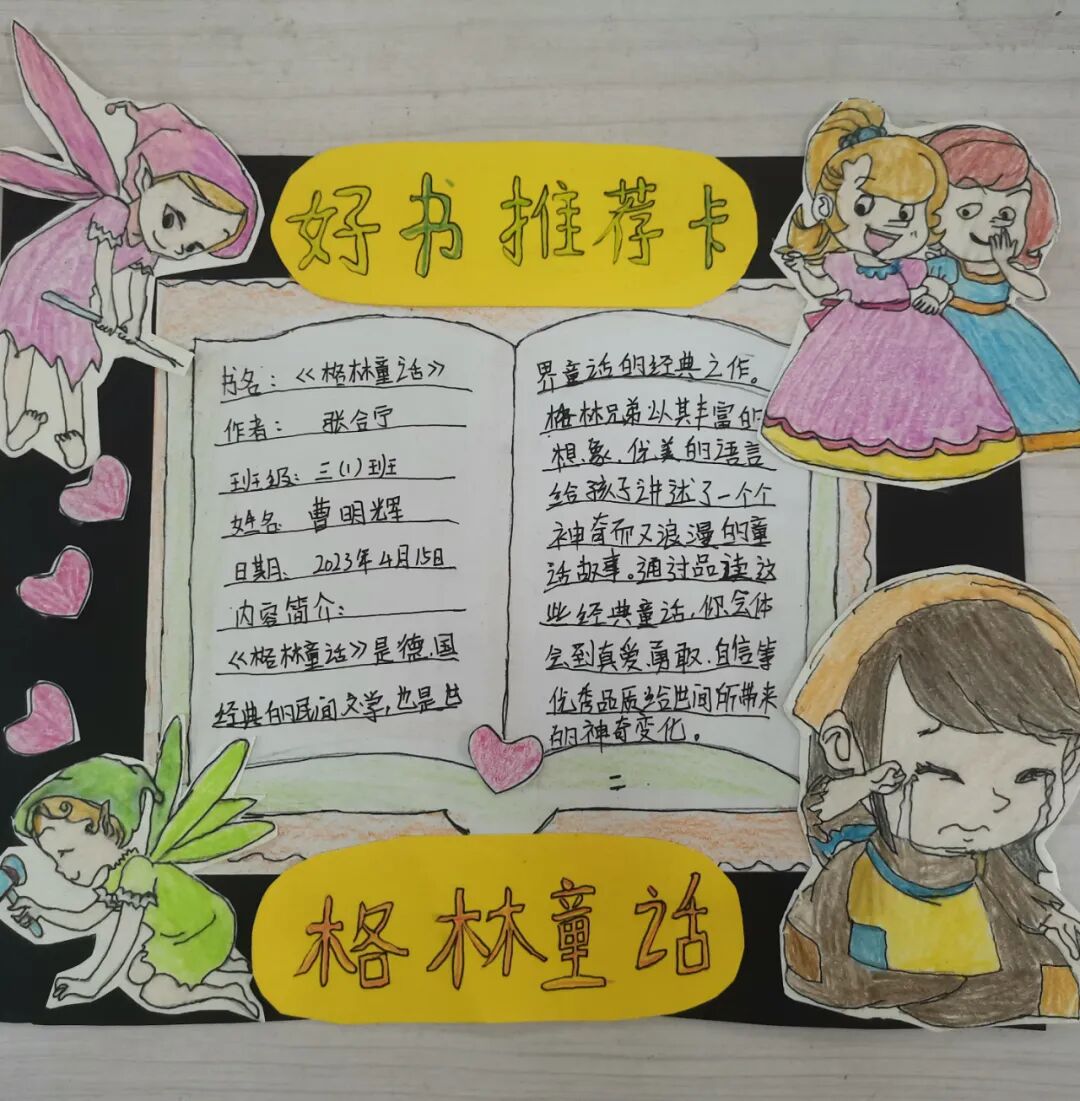 好书推荐卡
书名：《格林童话》
作者： 张合宁
班级：三（1）班
姓名 曹明辉
日期： 2023年4月15日
内容简介：
《格林童话》是德国
经典的民间文学，也是世
界童话的经典之作。
格林兄弟以其丰富的
想象、优美的语言
给孩子讲述了一个个
神奇而又浪漫的童
话故事。通过品读这
些经典童话，你会体
会到真爱、勇敢、自信等
优秀品质给世间所带来
的神奇变化。
格林童话